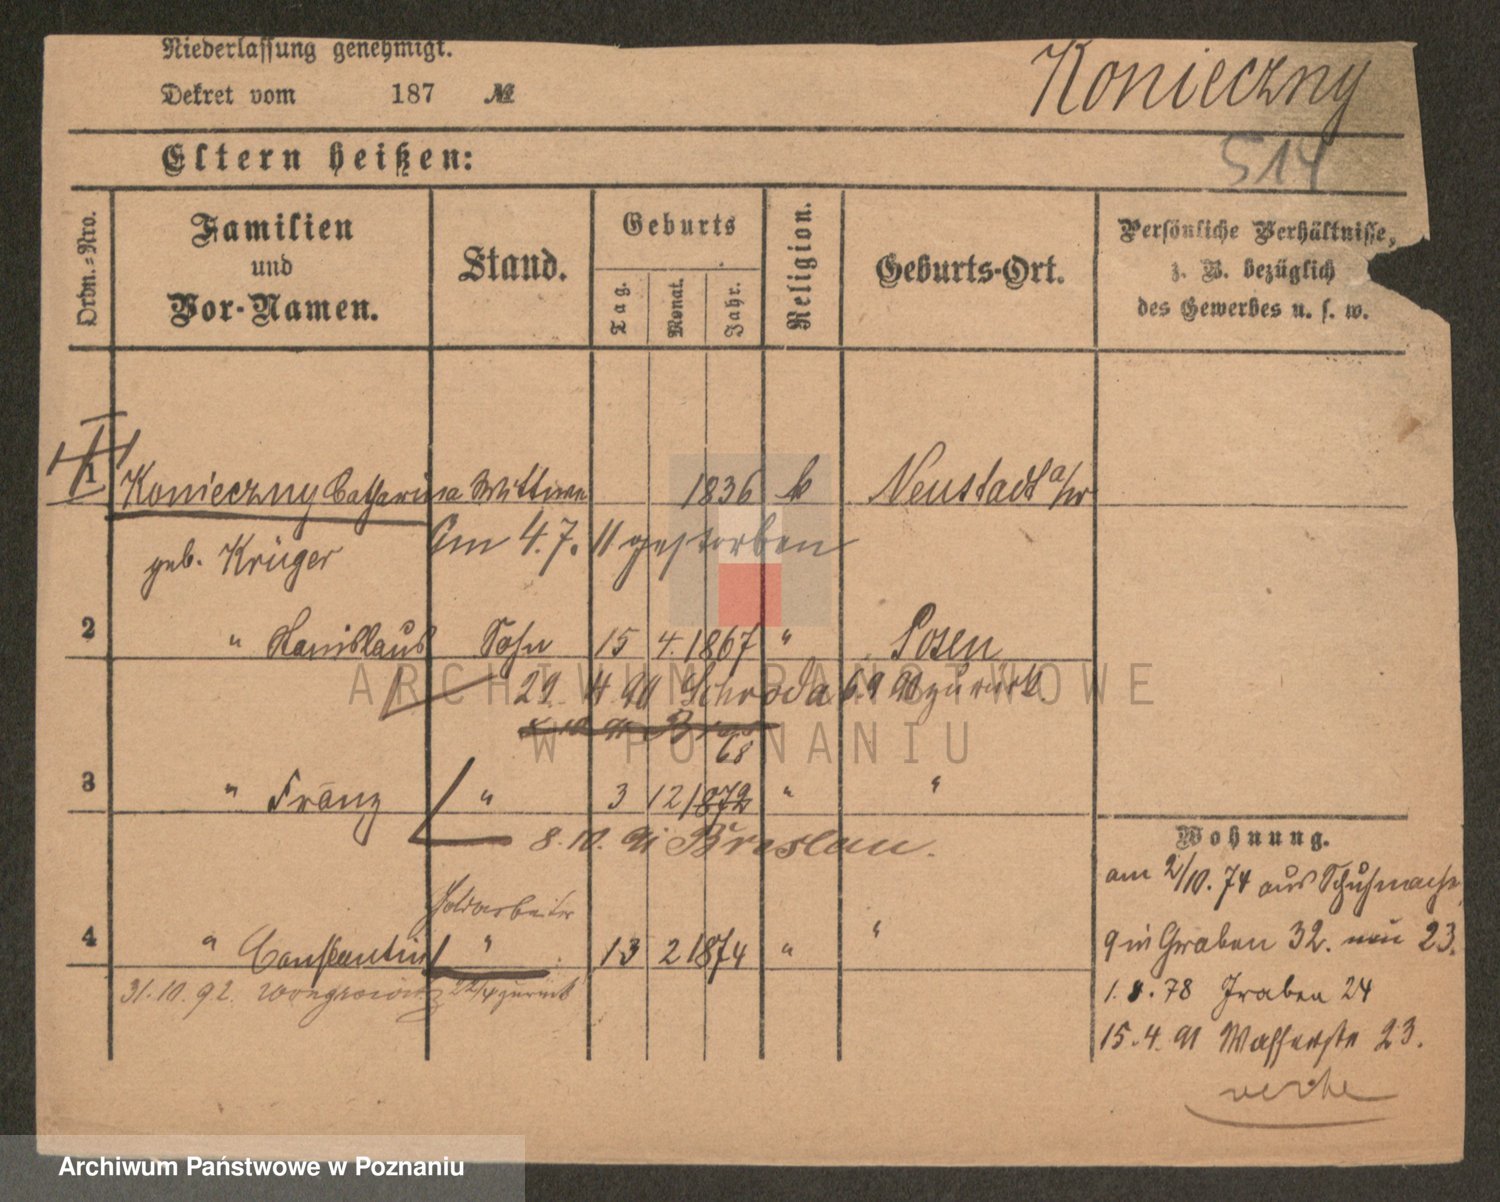 Niederlassung genehmigt.
Dekret vom 187 №
Konieczny
514
Eltern heißen:
Ordn.-Nro.
Familien
und
Vor-Namen.
Stand.
Geburts
Tag.
Monat.
Jahr.
Religion.
Geburts-Ort.
Persönliche Verhältnisse,
z. B. bezüglich
des Gewerbes u. s. w.
1 Konieczny Catharina Wittwe 1836 k Neustadt a/W
geb. Krüger
Am 4.7.11 gestorben
2 " Stanislaus Sohn 15 4. 1867 " Posen
29. 4 90 Schroda 6.9 90 zurück
68
3 " Franz " 3 12 1872 " "
8.10.91 Breslau.
Goldarbeiter
4 " Constantin " 13 2 1874 " "
31.10.92. Wongrowitz 22/4 zurück
Wohnung.
am 2/10.74 aus Schuhmache
Graben 32. neu 23.
1.8.78 Graben 24
15.4.91 Wasserstr 23.
ARCHIWUM PAŃSTWOWE
W POZNANIU
Archiwum Państwowe w Poznaniu